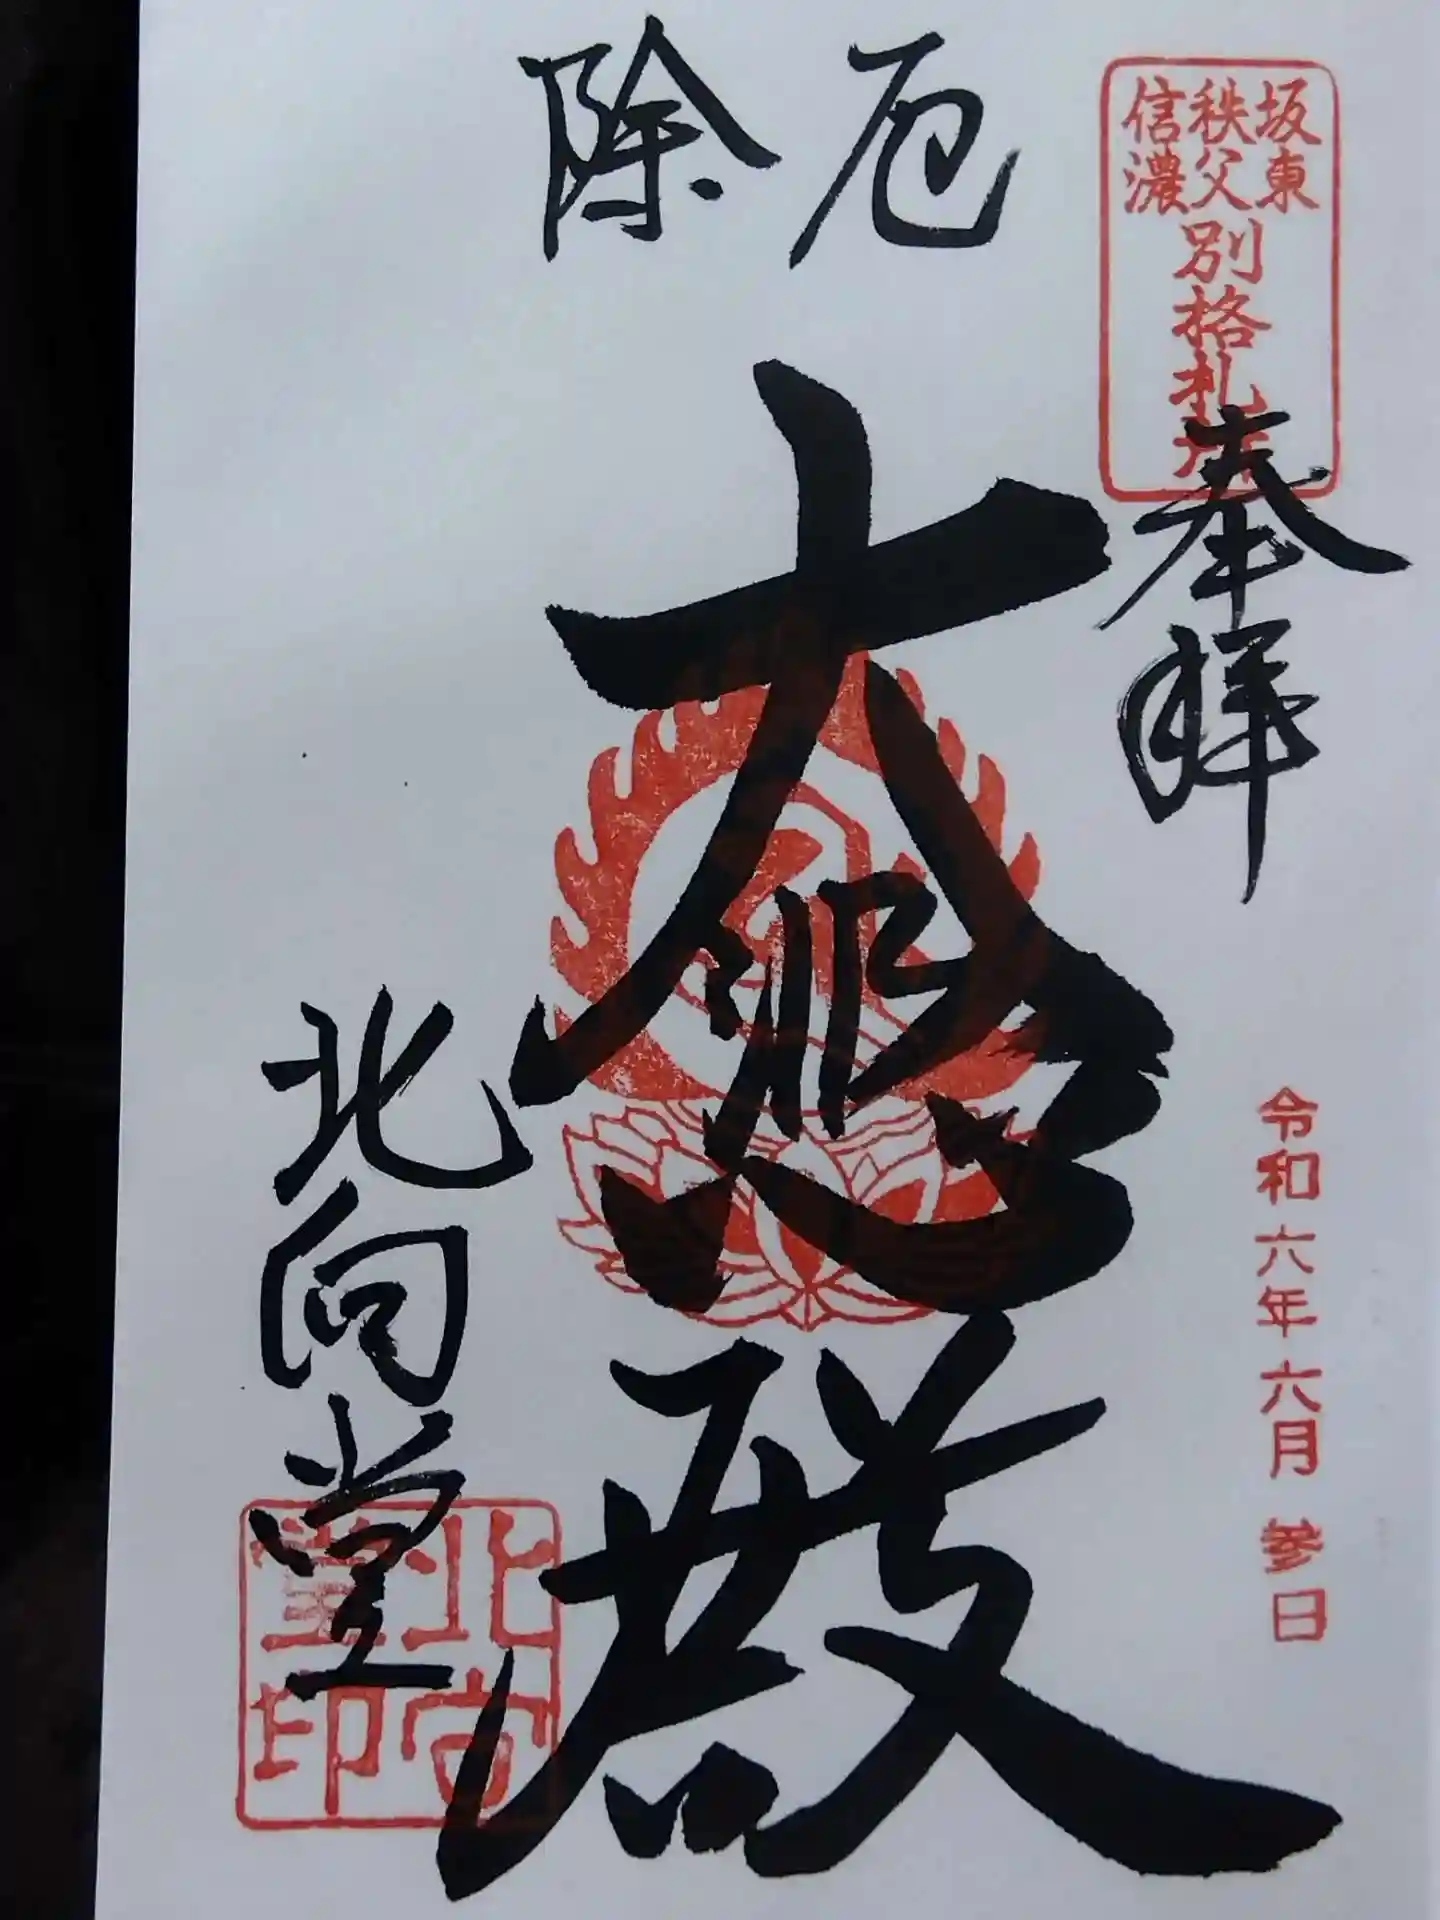 坂東
秩父
信濃
別格札所
奉拝
令和六年六月参日
厄除
大悲殿
北向堂
北向
堂印